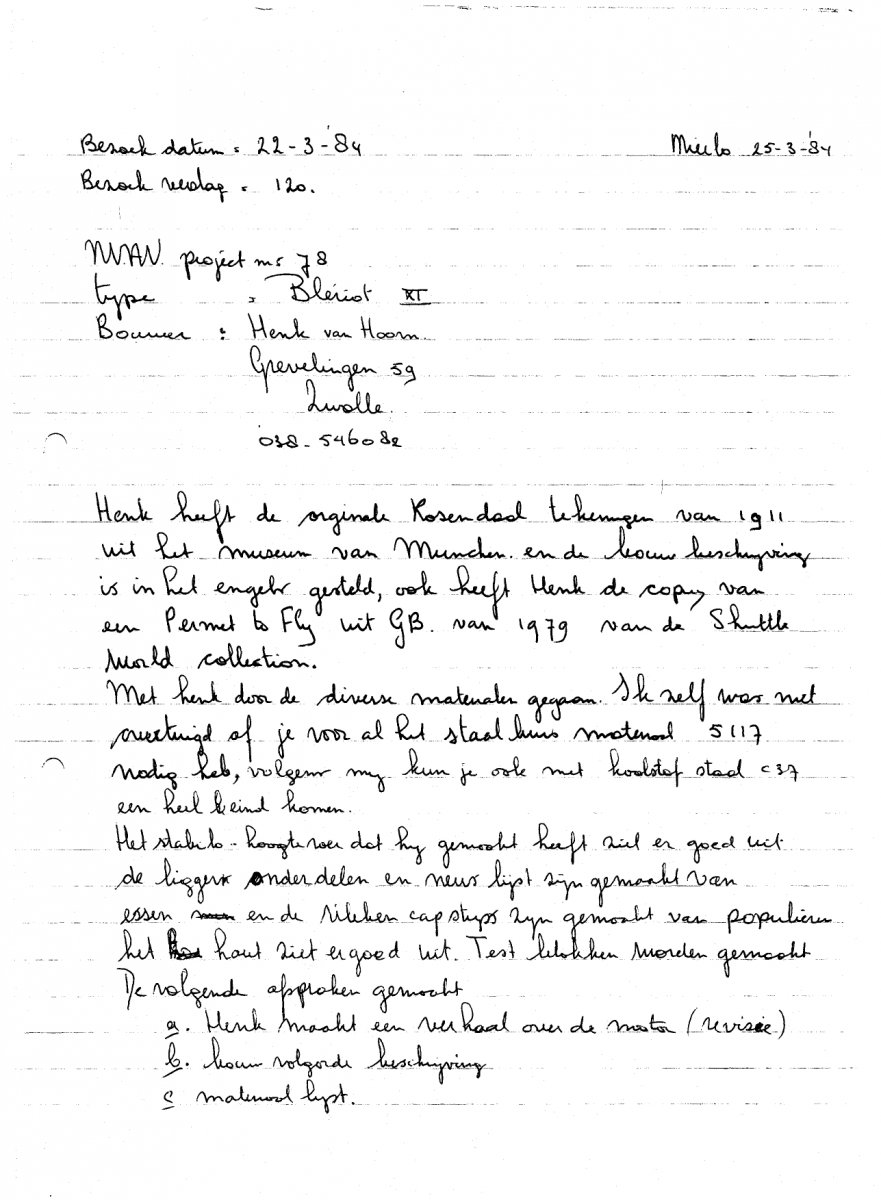 Bezoek datum = 22-3-'84 Mierlo 25-3-'84
Bezoek verslag = 120.
NVAV. project nr 78
type = Blériot XI
Bouwer : Henk van Hoorn
Grevelingen 59
Zwolle.
038-546082
Henk heeft de orginale Rosendaal tekeningen van 1911
uit het museum van Munchen. en de bouw beschrijving
is in het engels gesteld, ook heeft Henk de copy van
een Permet to Fly uit GB. van 1979 van de Shuttle
World collection.
Met henk door de diverse materialen gegaan. Ik zelf was niet
overtuigd of je voor al het staal buis materiaal 5117
nodig heb, volgens my kun je ook met koolstof staal c37
een heel eind komen.
Het stabilo - hoogteroer dat hy gemaakt heeft ziet er goed uit
de ligger onderdelen en neus lijst zijn gemaakt van
essen en de ribben cap strips zyn gemaakt van populieren
het hout ziet er goed uit. Test blokken worden gemaakt
De volgende afspraken gemaakt
a. Henk maakt een verhaal over de motor (revisie)
b. bouw volgorde beschrijving
c materiaal lyst.